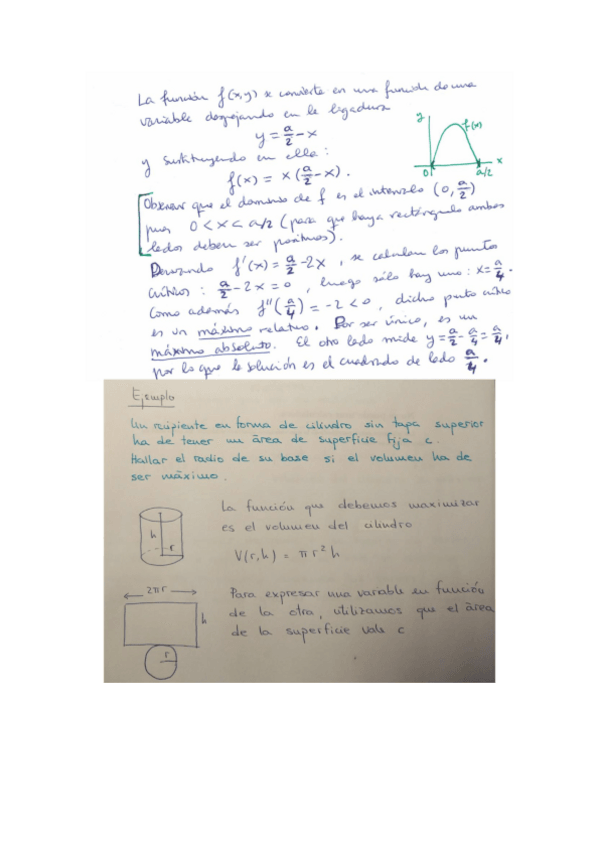 La función f(x,y) se convierte en una función de una
variable despejando en la ligadura
y = a/2 - x
y sustituyendo en ella:
f(x) = x (a/2 - x).
y
f(x)
0
a/2
x
Observar que el dominio de f es el intervalo (0, a/2)
pues 0 < x < a/2 (para que haya rectángulo ambos
lados deben ser positivos).
Derivando f'(x) = a/2 - 2x, se calculan los puntos
críticos: a/2 - 2x = 0, luego sólo hay uno: x = a/4.
Como además f''(a/4) = -2 < 0, dicho punto crítico
es un máximo relativo. Por ser único, es un
máximo absoluto. El otro lado mide y = a/2 - a/4 = a/4,
por lo que la solución es el cuadrado de lado a/4.
Ejemplo
Un recipiente en forma de cilindro sin tapa superior
ha de tener un área de superficie fija c.
Hallar el radio de su base si el volumen ha de
ser máximo.
h
r
La función que debemos maximizar
es el volumen del cilindro
V(r,h) = π r² h
2πr
h
r
Para expresar una variable en función
de la otra, utilizamos que el área
de la superficie vale c